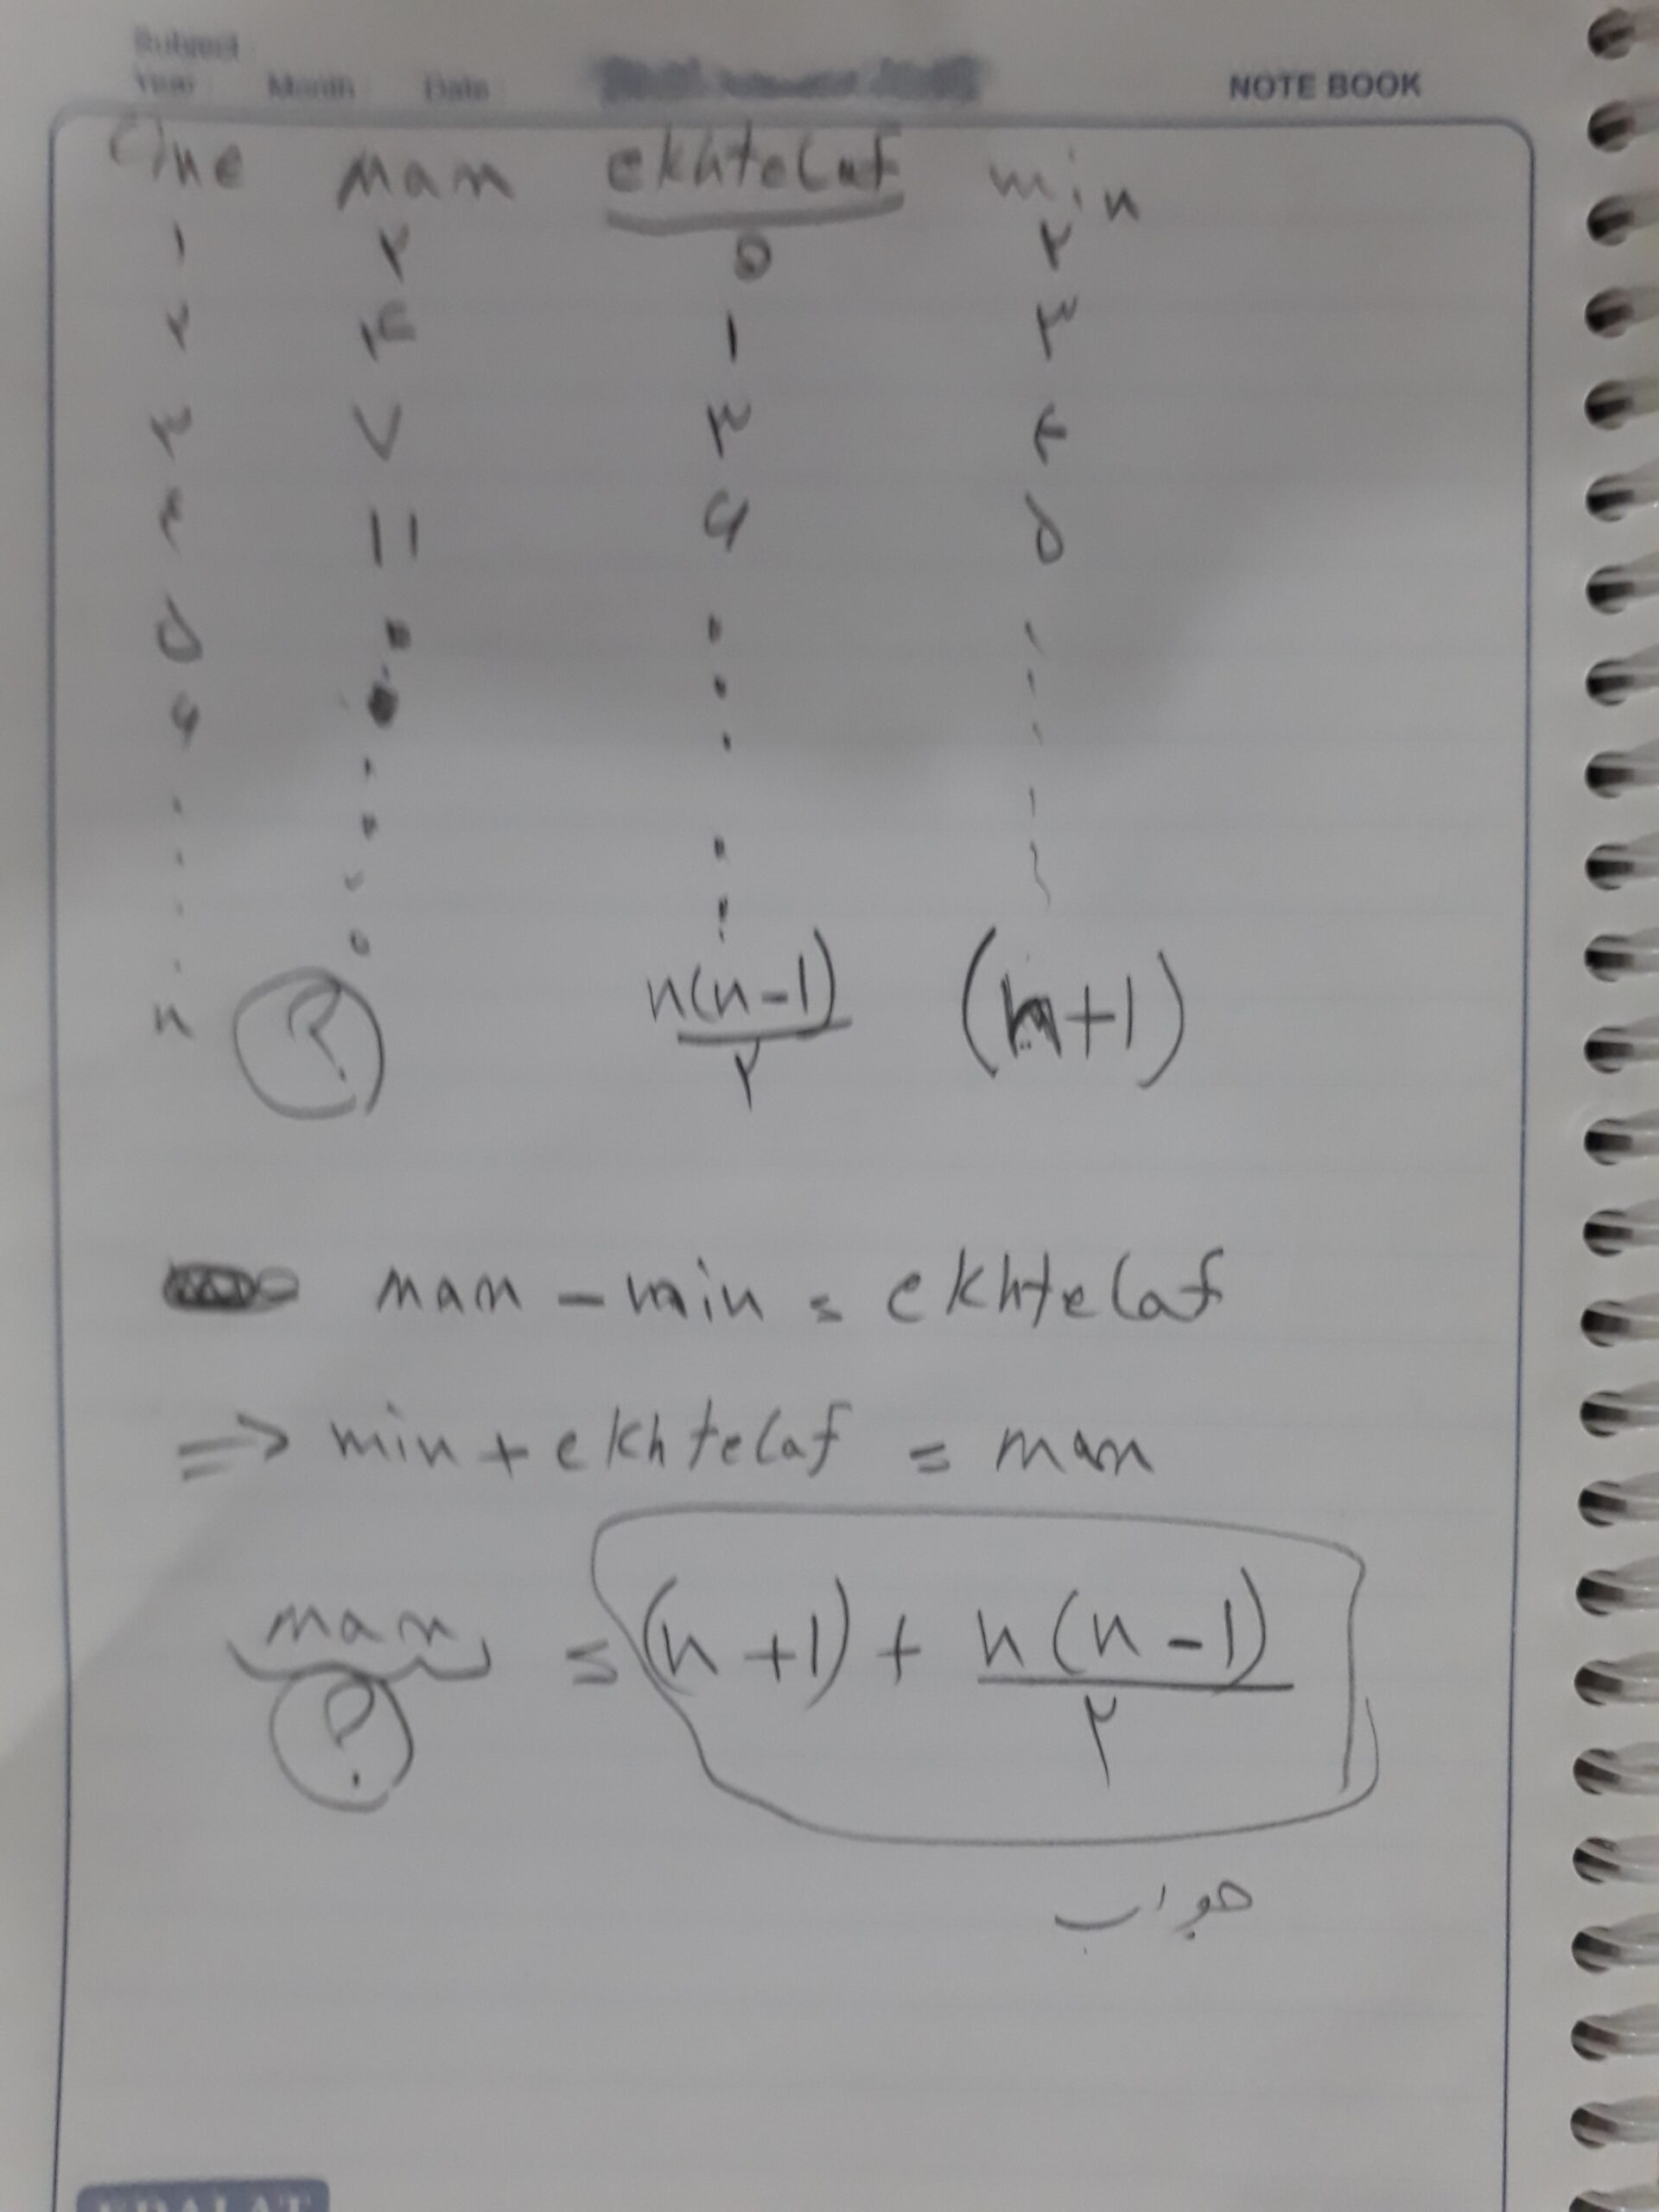 Subject
Year Month Date NOTE BOOK
line max ekhtelaf min
۱ ۲ 0 ۲
۲ ۴ ۱ ۳
۳ ۷ ۳ ۴
۴ ۱۱ ۶ ۵
۵
۶
n ? n(n-1)/۲ (n+1)
max - min = ekhtelaf
=> min + ekhtelaf = max
max = (n+1) + n(n-1)/۲
?
جواب
EDALAT